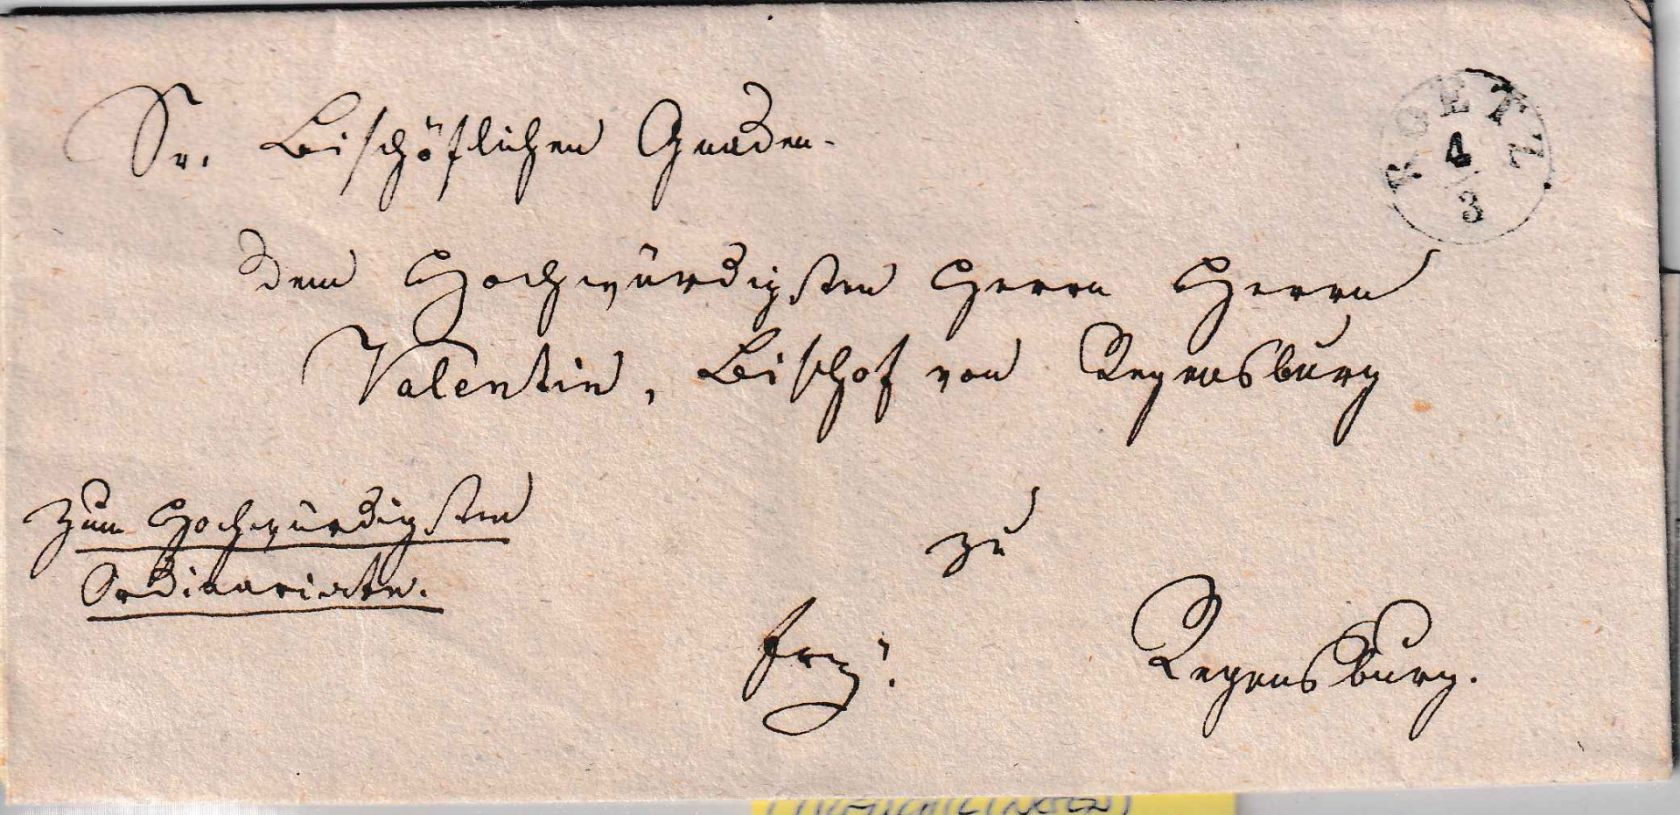 ROETZ
4
3
Sr. Bischöflichen Gnaden.
dem Hochwürdigsten Herrn Herrn
Valentin, Bischof von Regensburg
Zum Hochwürdigsten
Ordinariate.
zu
Regensburg.